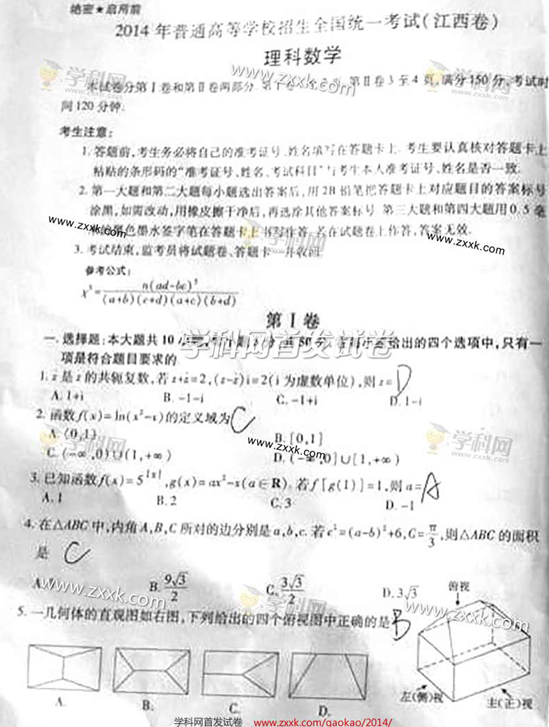 绝密★启用前
2014年普通高等学校招生全国统一考试(江西卷)
理科数学
www.zxxk.com
学科网
本试卷分第Ⅰ卷和第Ⅱ卷两部分.第Ⅰ卷 第Ⅱ卷3至4页,满分150分,考试时
间120分钟.
考生注意:
1.答题前,考生务必将自己的准考证号、姓名填写在答题卡上.考生要认真核对答题卡上
粘贴的条形码的“准考证号、姓名、考试科目”与考生本人准考证号、姓名是否一致.
2.第一大题和第二大题每小题选出答案后,用2B铅笔把答题卡上对应题目的答案标号
涂黑,如需改动,用橡皮擦干净后,再选涂其他答案标号.第三大题和第四大题用0.5毫
www.zxxk.com
黑色墨水签字笔在答题卡上书写作答,若在试题卷上作答,答案无效.
www.zxxk.com
3.考试结束,监考员将试题卷、答题卡一并收回.
参考公式:
χ²=n(ad-bc)²/(a+b)(c+d)(a+c)(b+d)
第Ⅰ卷
学科网首发试卷
一.选择题:本大题共10小题 给出的四个选项中,只有一
项是符合题目要求的.
1. z̄是z的共轭复数,若z+z̄=2,(z-z̄)i=2(i为虚数单位),则z= D
A. 1+i B. -1-i C. -1+i D. 1-i
2. 函数f(x)=ln(x²-x)的定义域为 C
A. (0,1) B. [0,1]
www.zxxk.com
学科网
C. (-∞,0)∪(1,+∞) D. (-∞,0]∪[1,+∞)
3. 已知函数f(x)=5^|x|,g(x)=ax²-x(a∈R).若f[g(1)]=1,则a= A
A. 1 B. 2 C. 3 D. -1
4. 在△ABC中,内角A,B,C所对的边分别是a,b,c.若c²=(a-b)²+6,C=π/3,则△ABC的面积
是 C
A. B. 9√3/2 C. 3√3/2 D. 3√3
www.zxxk.com
学科网
俯视
5. 一几何体的直观图如右图,下列给出的四个俯视图中正确的是 B
A. B. C. D.
左(侧)视 主(正)视
学科网首发试卷 www.zxxk.com/gaokao/2014/